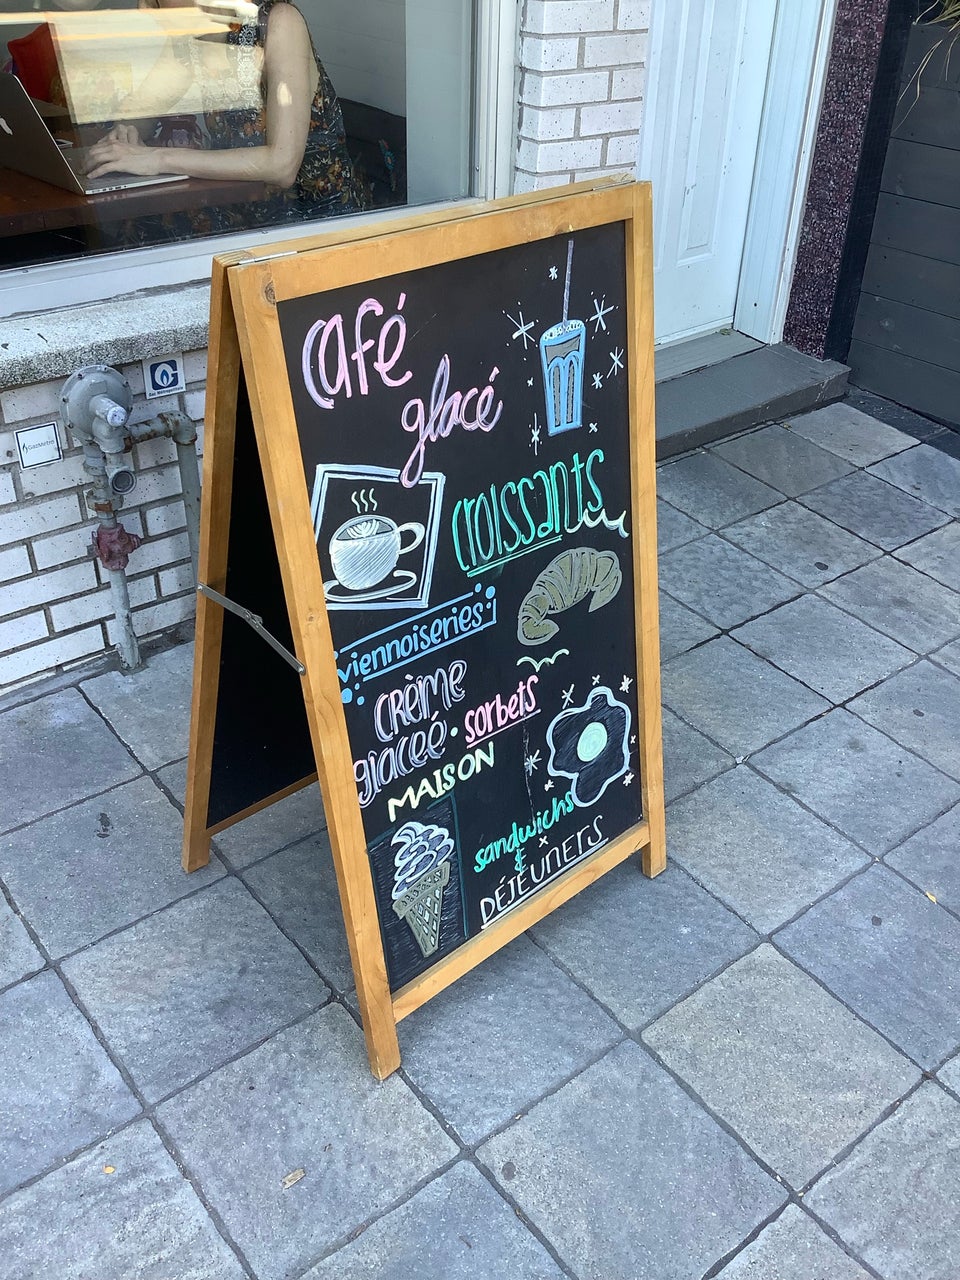 café
glacé
croissants
viennoiseries
crème
glaceé • sorbets
MAISON
sandwichs
&
DÉJEUNERS
G
Gaz Métropolitain
GazMetro